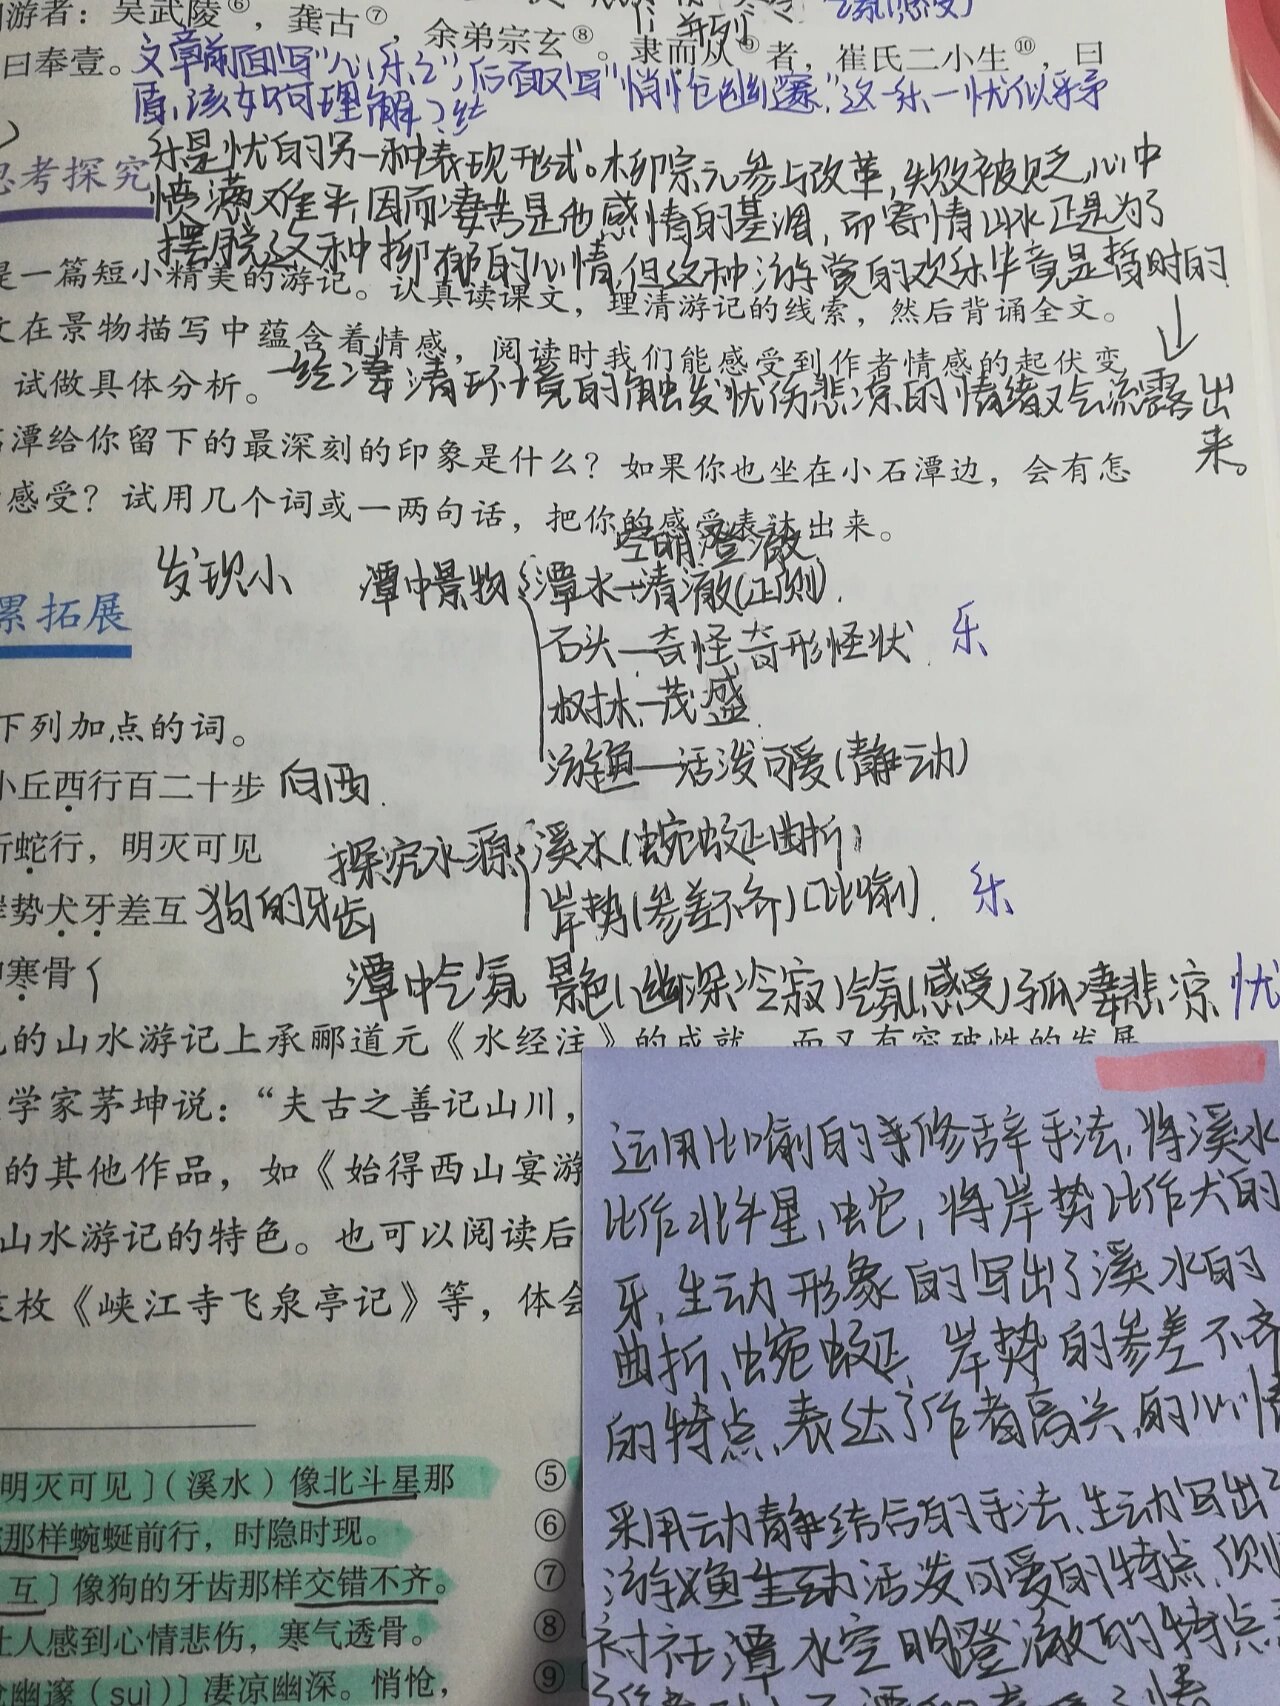 游者：吴武陵⑥，龚古⑦，余弟宗玄⑧。隶而从⑨者，崔氏二小生⑩，曰
并列
曰奉壹。
文章前面写“心乐之”，后面又写“悄怆幽邃”，这一乐一忧似乎矛
盾，该如何理解？
思考探究
乐是忧的另一种表现形式。柳宗元参与改革，失败被贬，心中
愤满难平，因而凄苦是他感情的基调，而寄情山水正是为了
摆脱这种抑郁的心情，但这种游赏的欢乐毕竟是暂时的
是一篇短小精美的游记。认真读课文，理清游记的线索，然后背诵全文。
文在景物描写中蕴含着情感，阅读时我们能感受到作者情感的起伏变
试做具体分析。
一经凄清环境的触发忧伤悲凉的情绪又会流露出
来。
石潭给你留下的最深刻的印象是什么？如果你也坐在小石潭边，会有怎
感受？试用几个词或一两句话，把你的感受表达出来。
空明澄澈
发现小
潭中景物
潭水—清澈(正侧)
石头—奇怪、奇形怪状 乐
树木—茂盛
游鱼—活泼可爱(静动)
累拓展
下列加点的词。
小丘西行百二十步 向西
折蛇行，明灭可见
探究水源
溪水(蜿蜒曲折)
岸势犬牙差互 狗的牙齿
岸势(参差不齐)(比喻) 乐
寒骨
潭中气氛 景色(幽深冷寂)气氛(感受)孤凄悲凉 忧
的山水游记上承郦道元《水经注》的成就，而又有突破性的发展
学家茅坤说：“夫古之善记山川，
的其他作品，如《始得西山宴游
山水游记的特色。也可以阅读后
枚《峡江寺飞泉亭记》等，体会
运用比喻的修辞手法，将溪水
比作北斗星、蛇，将岸势比作犬的
牙，生动形象的写出了溪水的
曲折、蜿蜒，岸势的参差不齐
的特点，表达了作者高兴的心情
采用动静结合的手法，生动写出了
游鱼生动活泼可爱的特点，侧
衬托潭水空明澄澈的特点
明灭可见〕（溪水）像北斗星那
那样蜿蜒前行，时隐时现。
互〕像狗的牙齿那样交错不齐。
让人感到心情悲伤，寒气透骨。
幽邃（suì）〕凄凉幽深。悄怆，
⑤
⑥
⑦
⑧
⑨